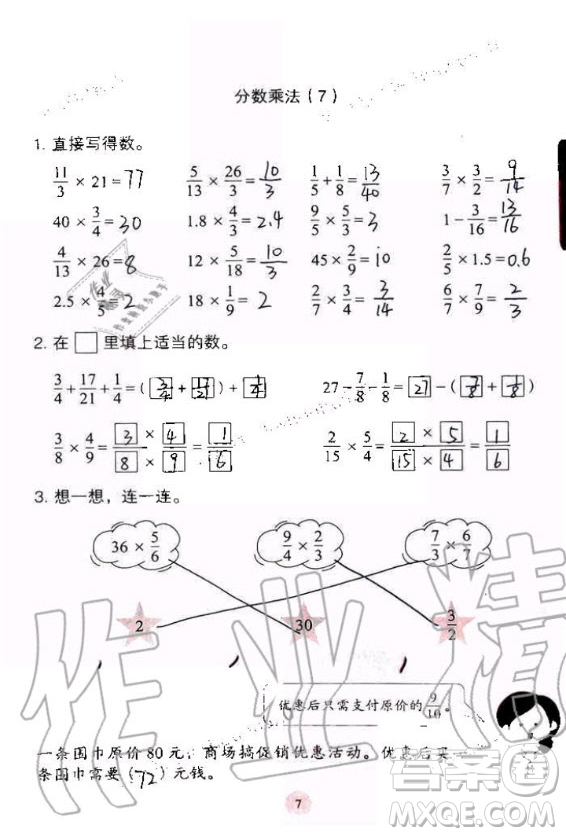 分数乘法(7)
1. 直接写得数。
11/3 × 21 = 77  5/13 × 26/3 = 10/3  1/5 + 1/8 = 13/40  3/7 × 3/2 = 9/14
40 × 3/4 = 30  1.8 × 4/3 = 2.4  9/5 × 5/3 = 3  1 - 3/16 = 13/16
4/13 × 26 = 8  12 × 5/18 = 10/3  45 × 2/9 = 10  2/5 × 1.5 = 0.6
2.5 × 4/5 = 2  18 × 1/9 = 2  2/7 × 3/4 = 3/14  6/7 × 7/9 = 2/3
2. 在□里填上适当的数。
3/4 + 17/21 + 1/4 = (3/4 + 17/21) + 1/4  27 - 7/8 - 1/8 = 27 - (7/8 + 1/8)
3/8 × 4/9 = 3 × 4/8 × 9 = 1/6  2/15 × 5/4 = 2 × 5/15 × 4 = 1/6
3. 想一想，连一连。
36 × 5/6  9/4 × 2/3  7/3 × 6/7
2  30  3/2
优惠后只需支付原价的9/10。
一条围巾原价80元，商场搞促销优惠活动。优惠后买一
条围巾需要(72)元钱。
7
作业精
答案圈
MXQE.COM